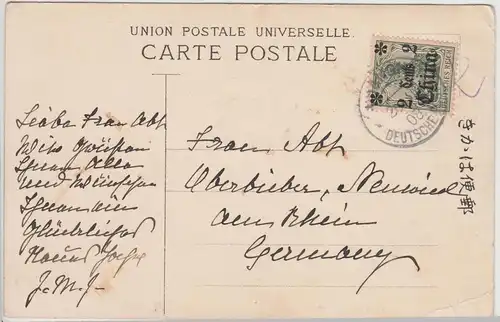 UNION POSTALE UNIVERSELLE.
CARTE POSTALE
2 Cents 2
China
DEUTSCHE
きかは便郵
Liebe Frau Abt
Wir Grüssen
Ihnen Alle
und Wünschen
Ihnen ein
Glückliches
Neues Jahr
J. M. J.
Frau Abt
Oberbieber, Neuwied
am Rhein
Germany